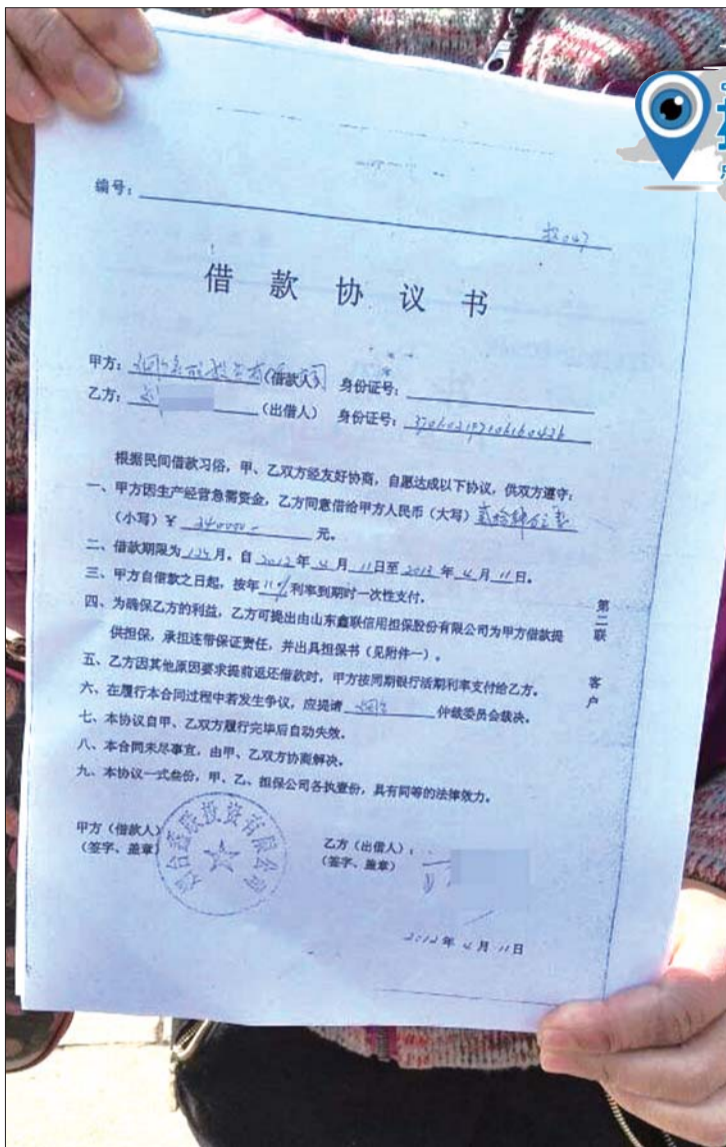 编号：
借款协议书
甲方： (借款人) 身份证号：
乙方： (出借人) 身份证号：
根据民间借款习俗，甲、乙双方经友好协商，自愿达成以下协议，供双方遵守：
一、甲方因生产经营急需资金，乙方同意借给甲方人民币（大写）贰拾肆万元整
（小写）￥ 240000 元。
二、借款期限为 12个月。自 2012 年 4 月 11 日至 2013 年 4 月 11 日。
三、甲方自借款之日起，按年 11% 利率到期时一次性支付。
四、为确保乙方的利益，乙方可提出由山东鑫联信用担保股份有限公司为甲方借款提
供担保，承担连带保证责任，并出具担保书（见附件一）。
五、乙方因其他原因要求提前返还借款时，甲方按同期银行活期利率支付给乙方。
六、在履行本合同过程中若发生争议，应提请 烟台 仲裁委员会裁决。
七、本协议自甲、乙双方履行完毕后自动失效。
八、本合同未尽事宜，由甲、乙双方协商解决。
九、本协议一式叁份，甲、乙、担保公司各执壹份，具有同等的法律效力。
第二联 客户
甲方（借款人）
（签字、盖章）
烟台鑫联投资有限公司
乙方（出借人）：
（签字、盖章）
2012年 4 月 11 日